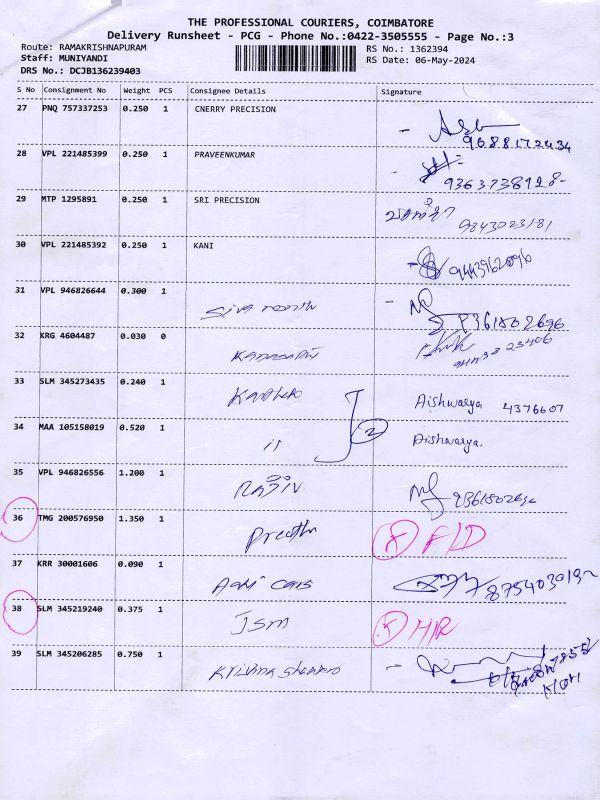 THE PROFESSIONAL COURIERS, COIMBATORE
Delivery Runsheet - PCG - Phone No.:0422-3505555 - Page No.:3
Route: RAMAKRISHNAPURAM RS No.: 1362394
Staff: MUNIYANDI RS Date: 06-May-2024
DRS No.: DCJB136239403
S No Consignment No Weight PCS Consignee Details Signature
27 PNQ 757337253 0.250 1 CNERRY PRECISION
9688172434
28 VPL 221485399 0.250 1 PRAVEENKUMAR
29 MTP 1295891 0.250 1 SRI PRECISION
9843023181
30 VPL 221485392 0.250 1 KANI
31 VPL 946826644 0.300 1
9361802696
32 KRG 4604487 0.030 0
33 SLM 345273435 0.240 1 Aishwarya 4376607
34 MAA 105158019 0.520 1 11 2 Aishwarya.
35 VPL 946826556 1.200 1 RAJIV
36 TMG 200576950 1.350 1 Preetha X F/D
37 KRR 30001606 0.090 1 Adhi Cars
38 SLM 345219240 0.375 1 JSM
39 SLM 345206285 0.750 1 Krishna